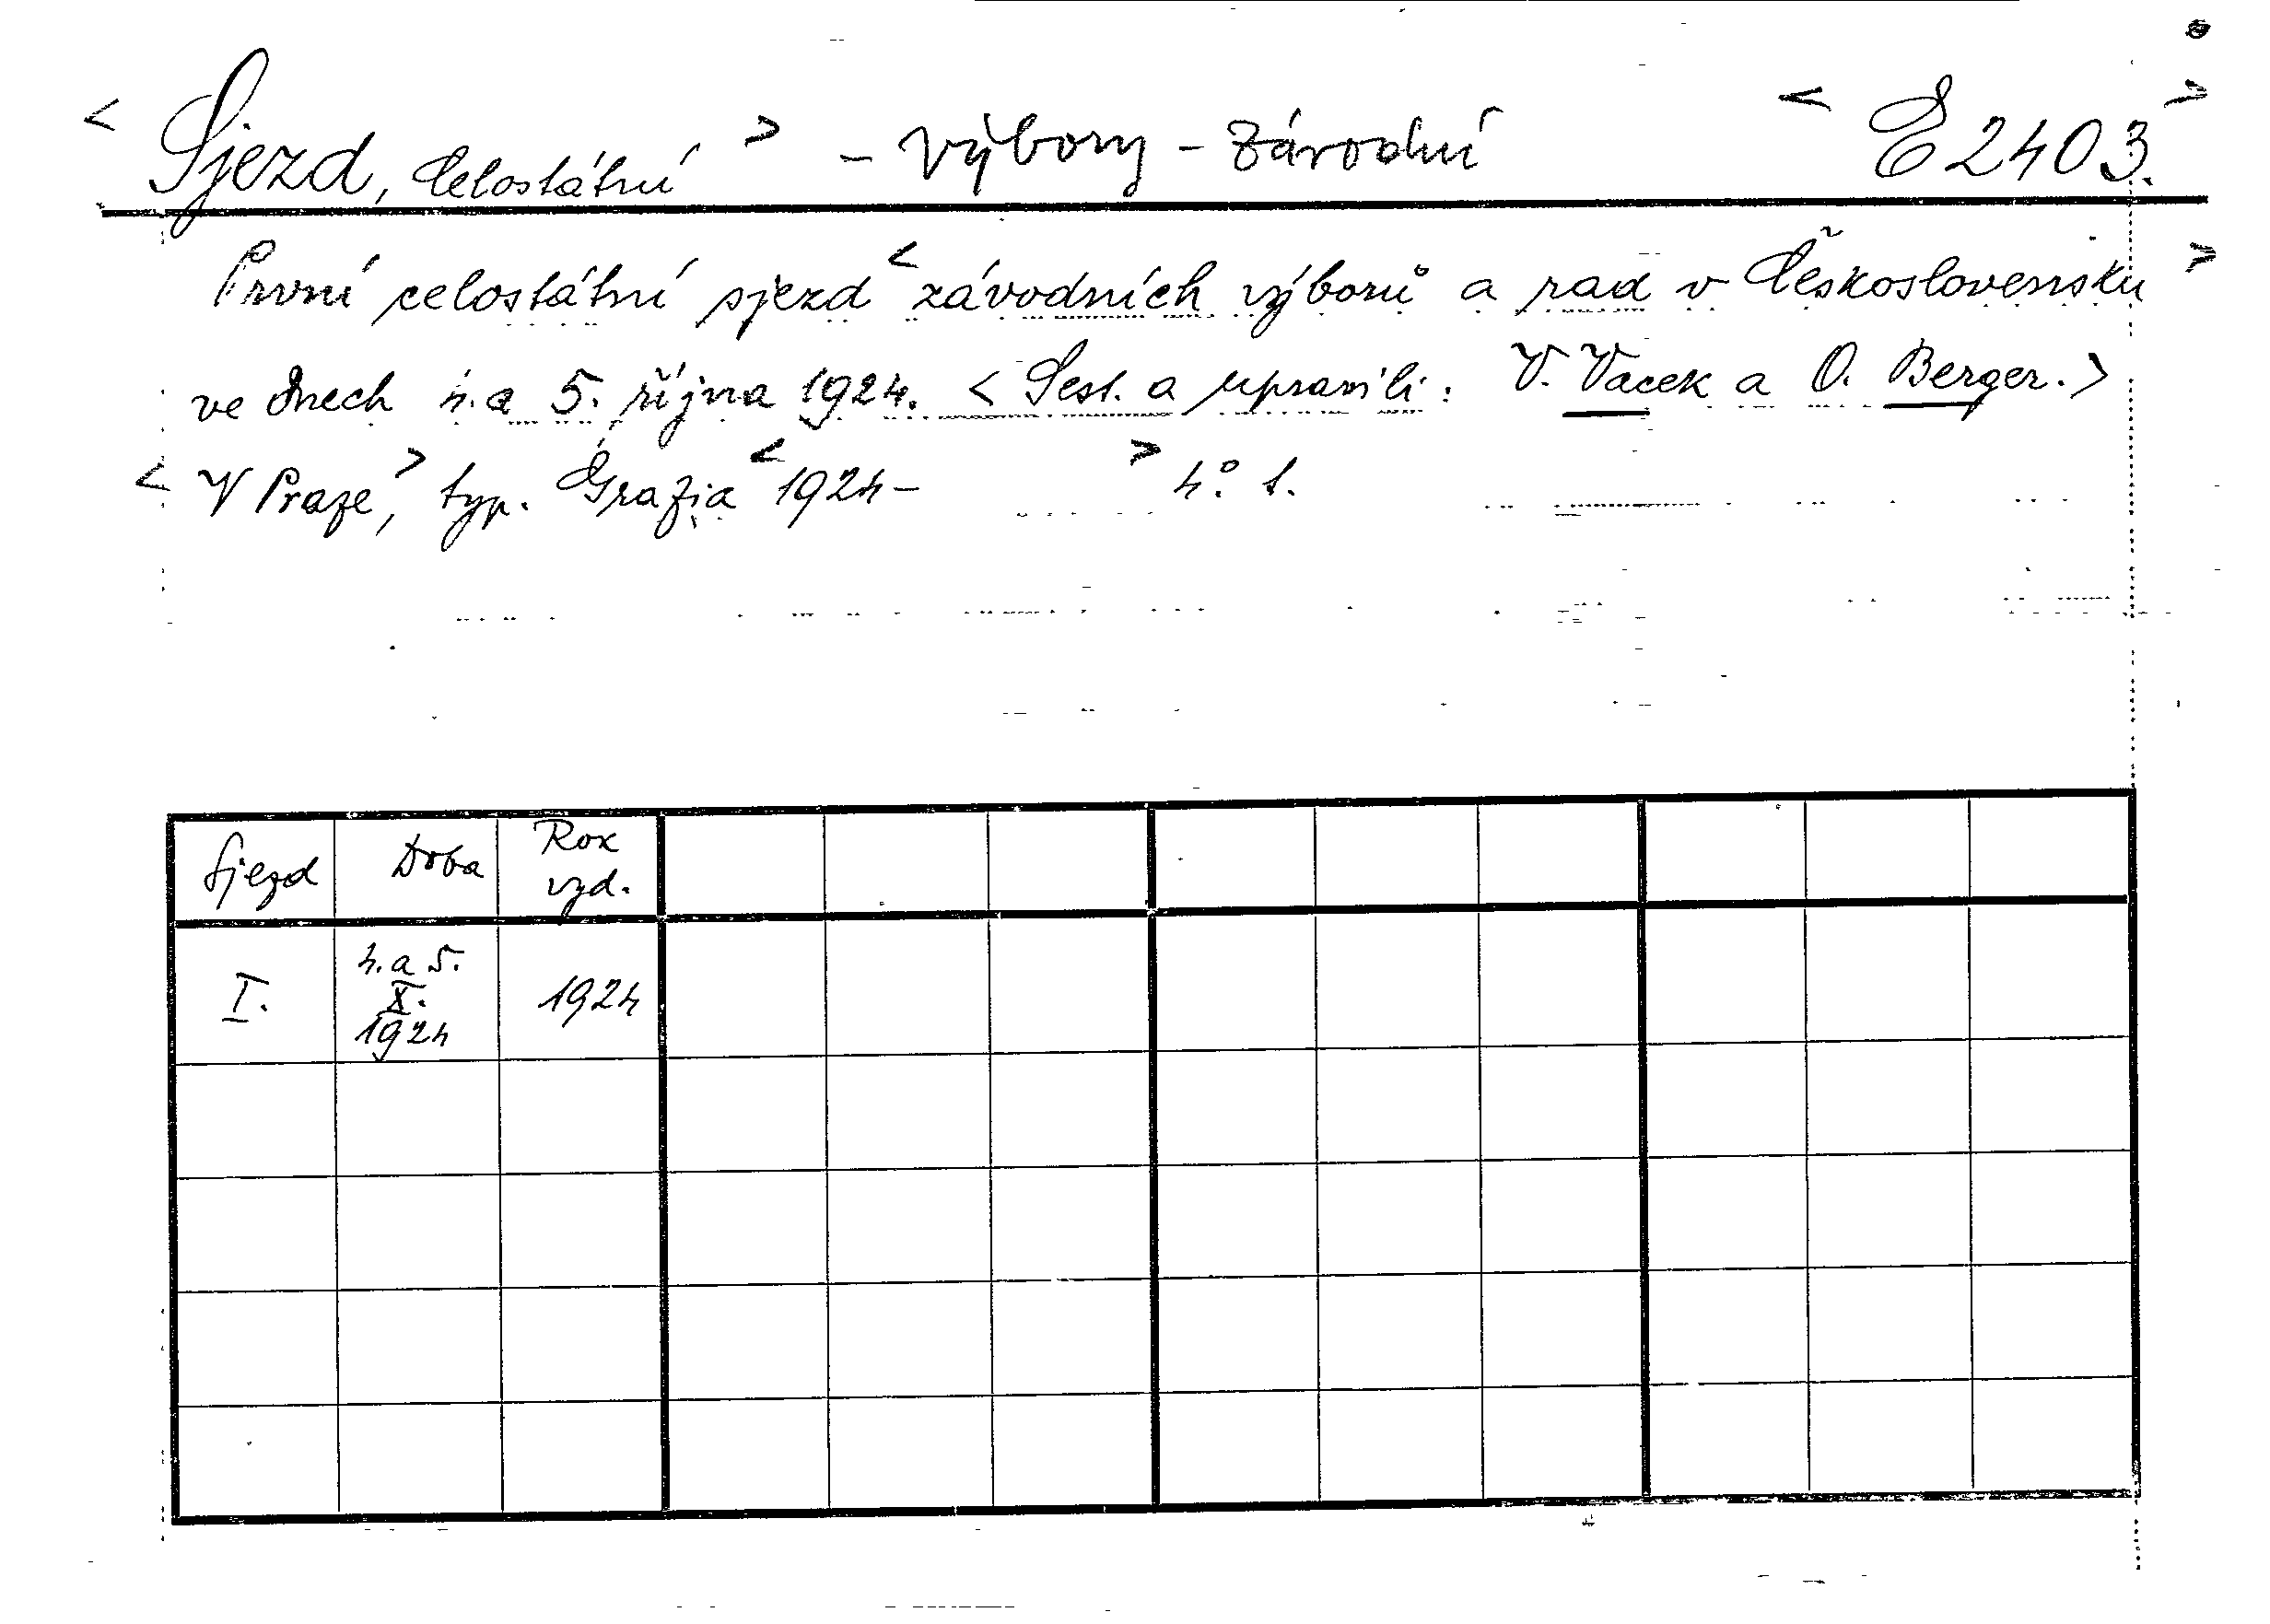 < Sjezd, celostátní > – výbory – závodní < E 2403. >
První celostátní sjezd < závodních výborů a rad v Československu >
ve dnech 4. a 5. října 1924. < Sest. a upravili: V. Vacek a O. Berger. >
< V Praze, > typ. Grafia < 1924 – > 4°. 1.
Sjezd Doba Rok vyd.
I. 4. a 5. X. 1924 1924